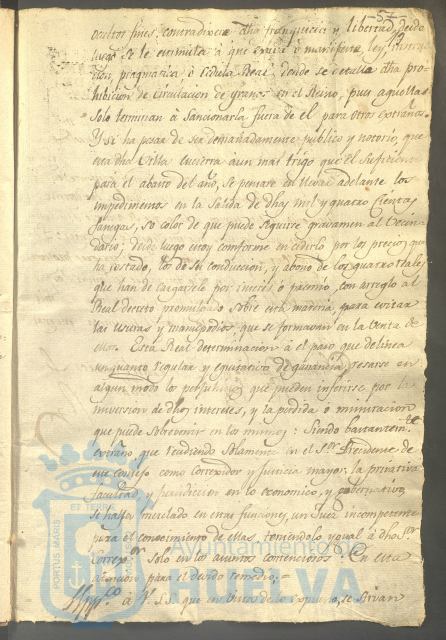 5
ocultos fines, contradiocir dha franquicia y libertad, desde
luego se le estimula á que exiva ó manifieste, ley, instruc-
cion, pragmatica ó Cedula Real, donde se detalla dha pro-
hibicion de circulacion de granos en el Reino, pues aquellas
solo terminan á sancionarla fuera de el para otros extraños.
Y si ha pesar de ser demasiadamente publico y notorio, que
esta dha Villa encierra aun mas trigo que el suficiente
para el abasto del año, se pensare en llevar adelante los
impedimentos en la salida de dhas mil y quatro cientas
fanegas, so color de que puede seguirse gravamen al Vecin-
dario; desde luego estoy comforme en cedirlo por los precios que
ha costado, los de su conduccion, y abono de los quatro rales
que han de cargarse por interes ó premio, con arreglo al
Real decreto promulgado sobre esta materia, para evitar
las usuras y monipodios, que se formavan en la Venta de
ellos. Esta Real determinacion á el paso que delinea
un quanto regular y equitativo de ganancia, resarse en
algun modo los perjuicios, que pueden inferirse por la
inversion de dhos intereses, y la perdida ó minoracion
que puede sobrevenir en los mismos: Siendo bastantemte
extraño, que residiendo solamente en el Sor Presidente de
ese Consejo como Corregidor y Justicia mayor, la privativa
facultad, y jurisdiccion en lo economico, y gubernativo,
se halla mesclado en estas funciones, un Juez incompetente
para el conocimiento de ellas, teniendolo ygual á dho Sor
Corregor solo en los asuntos contenciosos: En esta
atencion para el devido remedio;=
Suppco á V. S. S. que en vista de lo expuesto, se sirvan
ET TERRAE
PORTUS MARIS
Ayuntamiento de
HUELVA